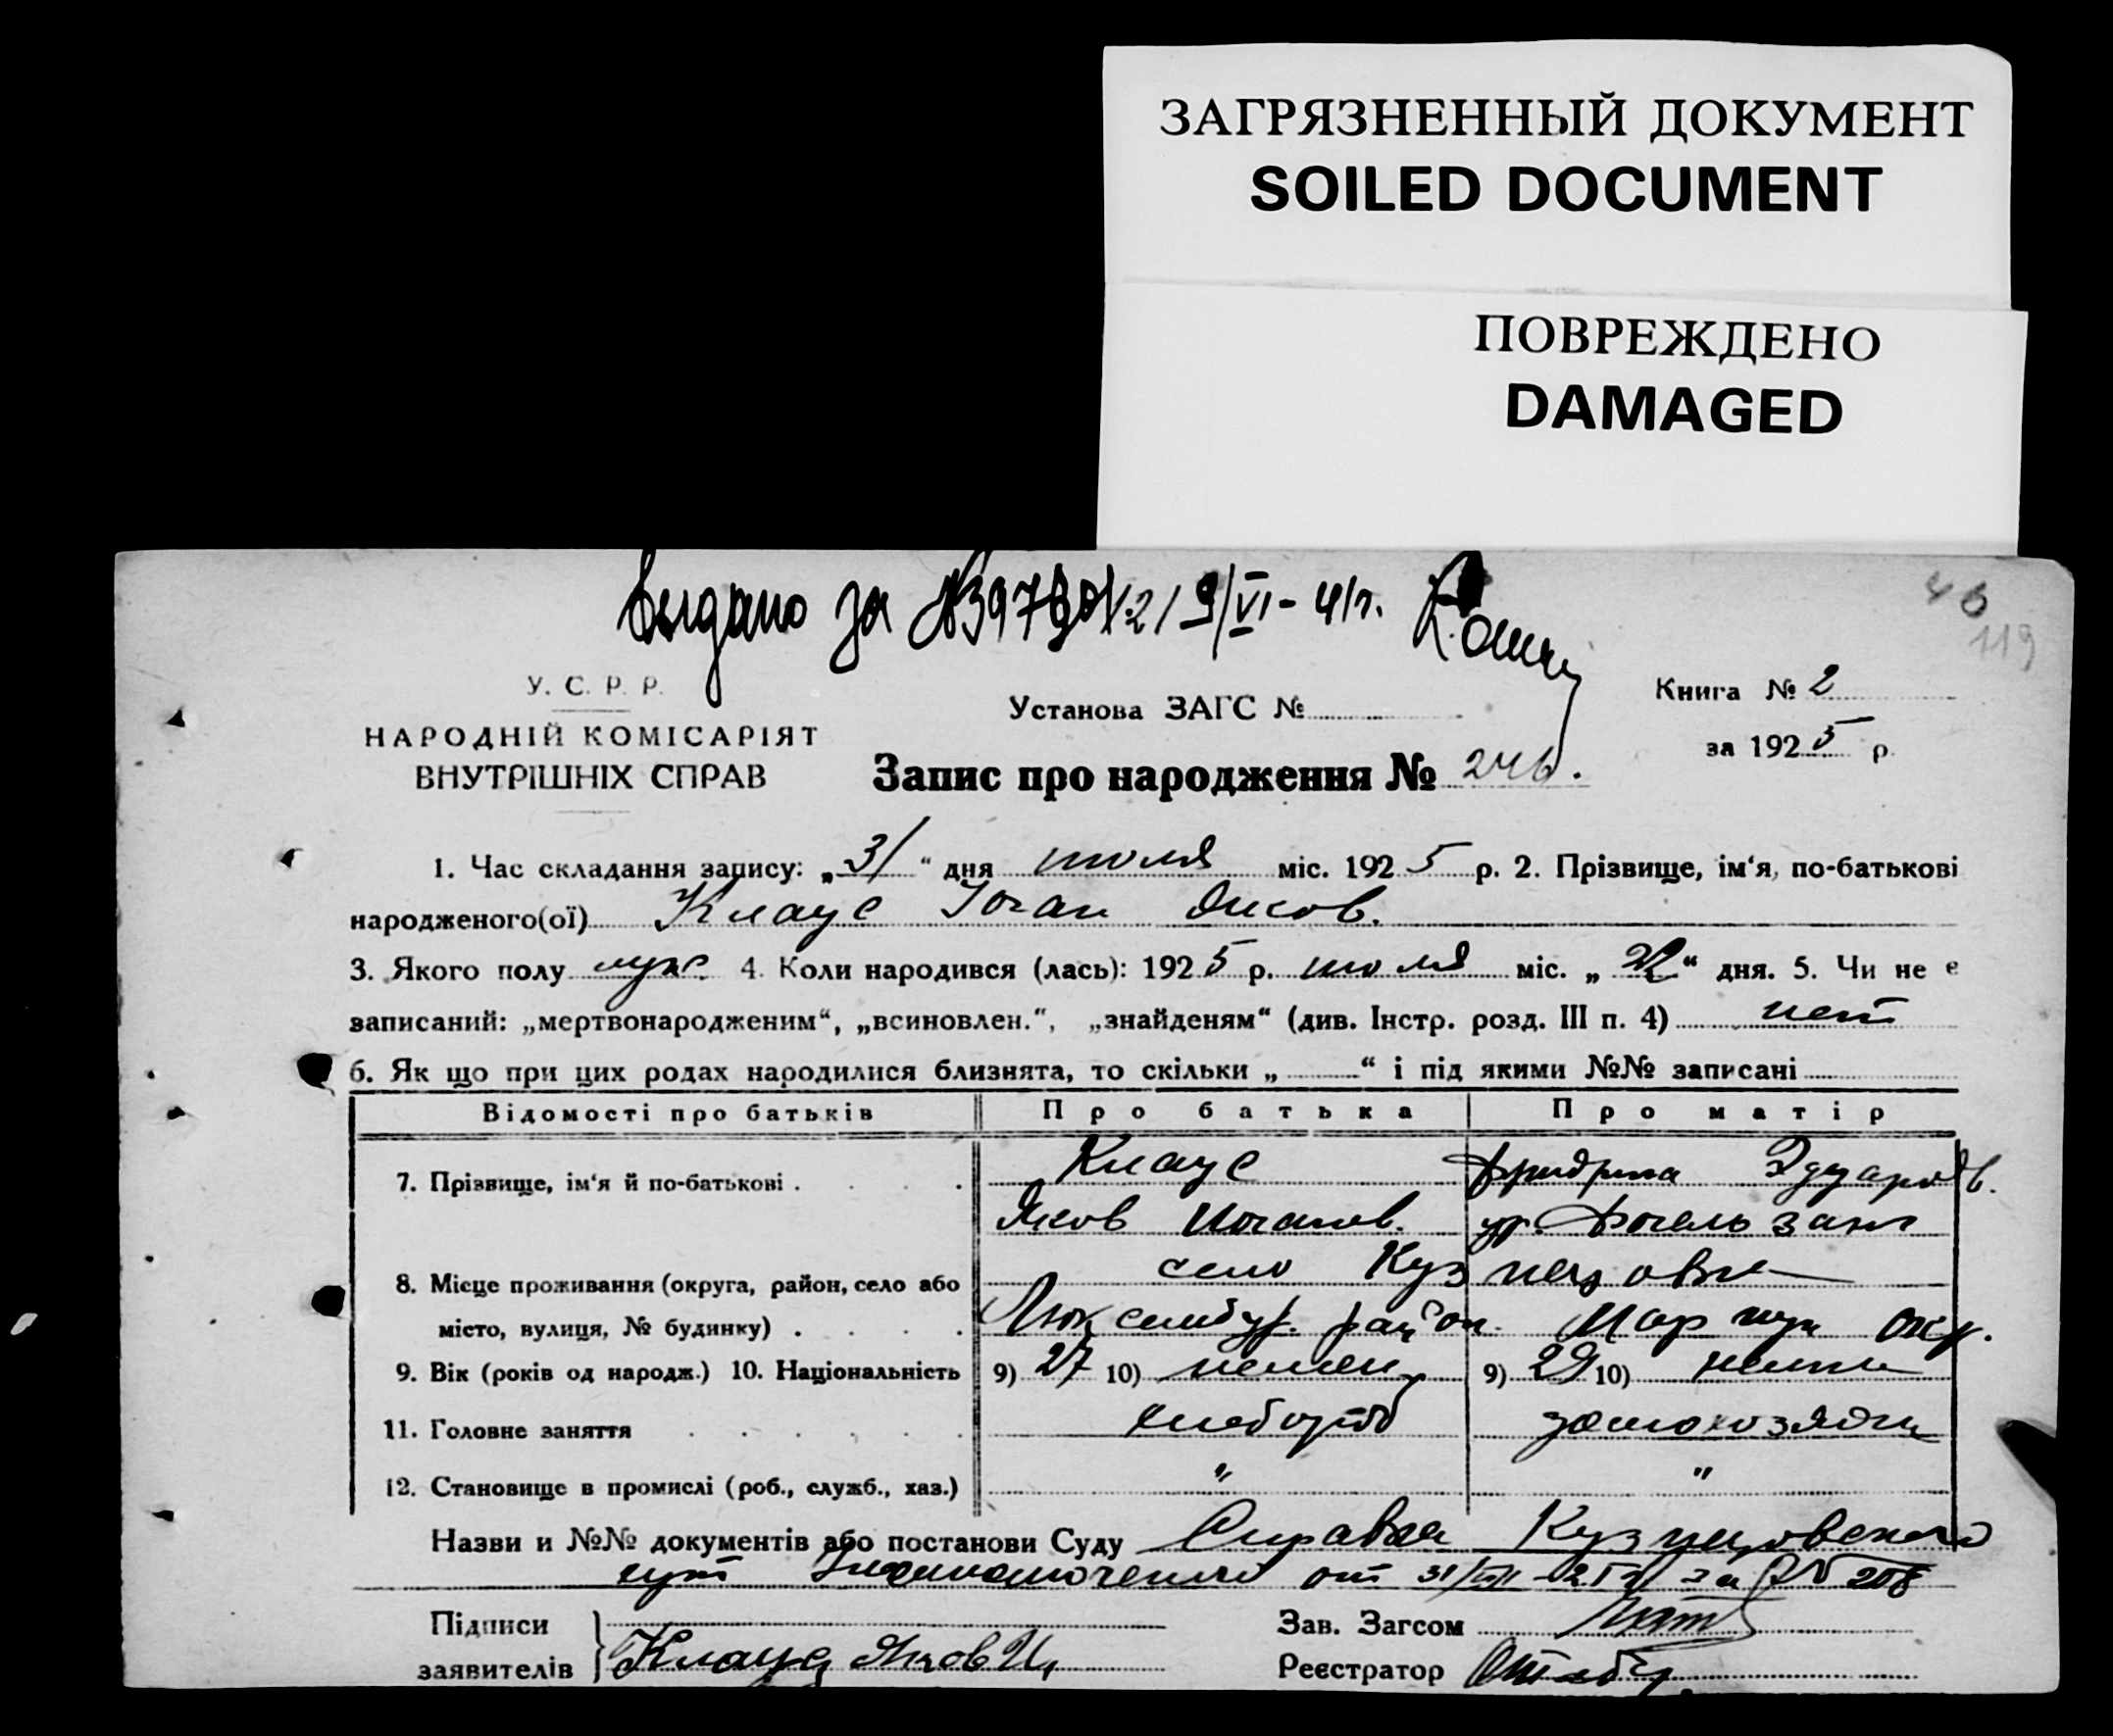 ЗАГРЯЗНЕННЫЙ ДОКУМЕНТ
SOILED DOCUMENT
ПОВРЕЖДЕНО
DAMAGED
Выдано за 9/VI-41г.
46
119
У. С. Р. Р.
НАРОДНІЙ КОМІСАРІЯТ
ВНУТРІШНІХ СПРАВ
Установа ЗАГС №
Книга № 2
за 1925 р.
Запис про народження № 246.
1. Час складання запису: „31“ дня июля міс. 1925 р. 2. Прізвище, ім‘я, по-батькові
народженого(ої) Клаус Иоган Яков.
3. Якого полу муж. 4. Коли народився (лась): 1925 р. июля міс. „ “ дня. 5. Чи не є
записаний: „мертвонародженим“, „всиновлен.“, „знайденям“ (див. Інстр. розд. III п. 4) нет
6. Як що при цих родах народилися близнята, то скільки „ “ і під якими №№ записані
Відомості про батьків Про батька Про матір
7. Прізвище, ім‘я й по-батькові . Клаус Фридрика Эдуардов.
Яков Иоганов. ур.
село Кузнецовка
8. Місце проживання (округа, район, село або
місто, вулиця, № будинку) . Люксембур. район Мариуп окр.
9. Вік (років од народж.) 10. Національність 9) 27 10) немец 9) 29 10) немка
11. Головне заняття хлебороб домохозяйк
12. Становище в промислі (роб., служб., хаз.) " "
Назви и №№ документів або постанови Суду Справка Кузнецовского
от 31/VII-25 г за № 208
Підписи
заявителів Клаус Яков И,
Зав. Загсом
Реєстратор